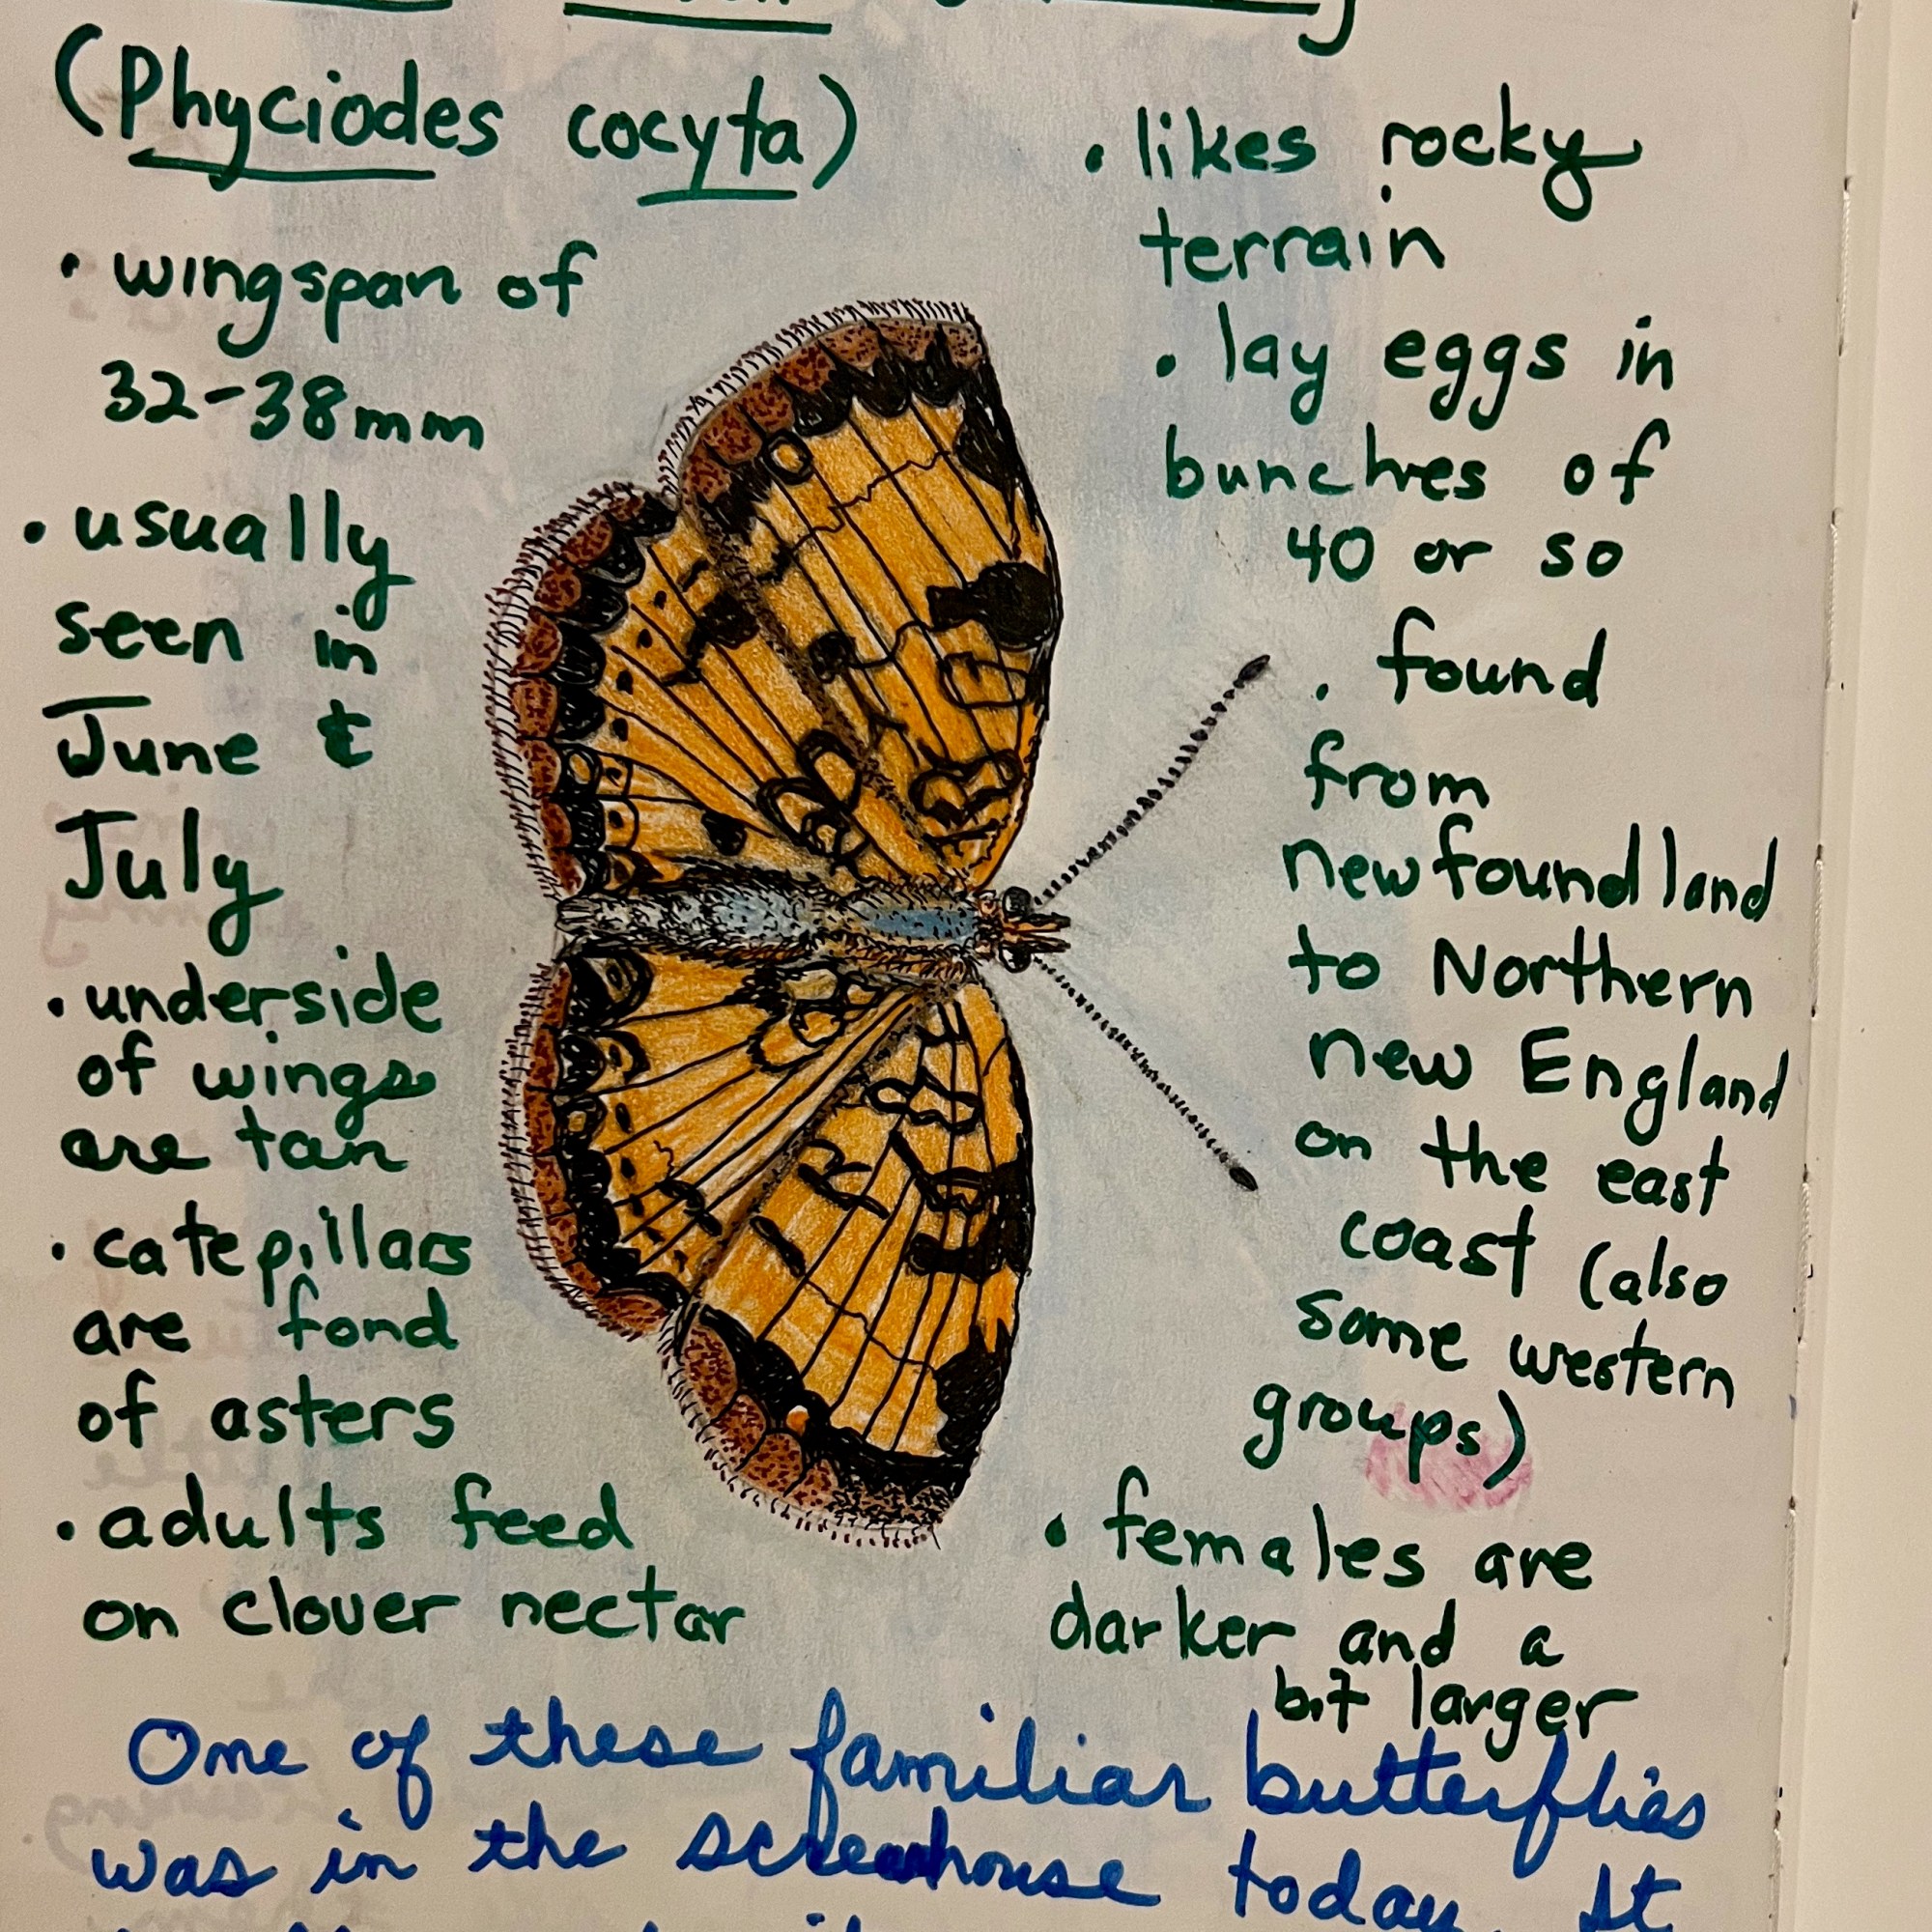 (Phyciodes cocyta)
• wingspan of
32-38mm
• usually
seen in
June &
July
• underside
of wings
are tan
• catepillars
are fond
of asters
• adults feed
on clover nectar
• likes rocky
terrain
• lay eggs in
bunches of
40 or so
• found
from
newfoundland
to Northern
new England
on the east
coast (also
some western
groups)
• females are
darker and a
bit larger
One of these familiar butterflies
was in the screenhouse today. It